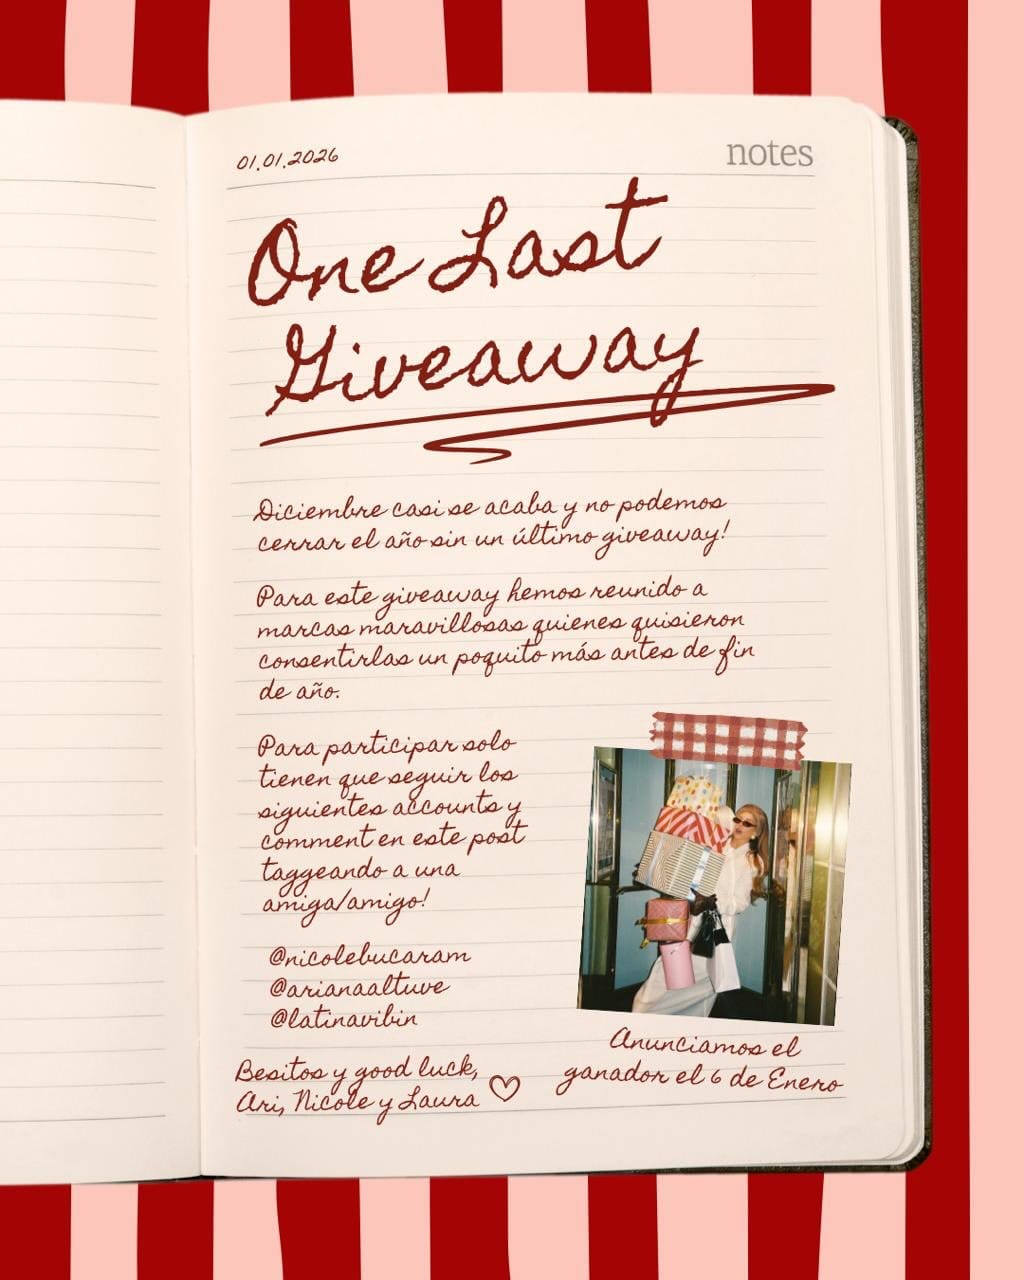 01.01.2026
notes
One Last
Giveaway
Diciembre casi se acaba y no podemos
cerrar el año sin un último giveaway!
Para este giveaway hemos reunido a
marcas maravillosas quienes quisieron
consentirlas un poquito más antes de fin
de año.
Para participar solo
tienen que seguir los
siguientes accounts y
comment en este post
taggeando a una
amiga/amigo!
@nicolebucaram
@arianaaltuve
@latinavibin
Besitos y good luck,
Ari, Nicole y Laura
Anunciamos el
ganador el 6 de Enero